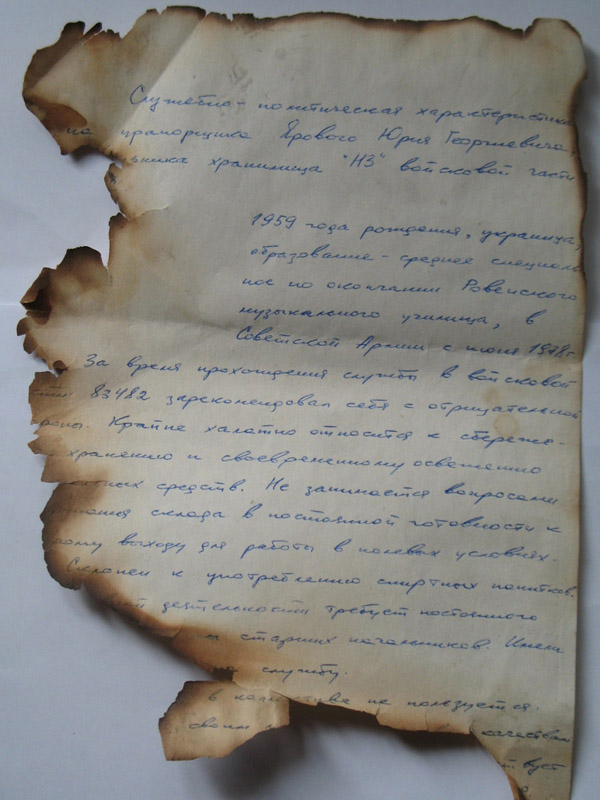 Служебно-политическая характеристика
на прапорщика Ярового Юрия Георгиевича
ника хранилища "НЗ" войсковой части
1959 года рождения, украинца,
образование - среднее специаль
ное по окончании Ровенского
музыкального училища, в
Советской Армии с июня 1978г
За время прохождения службы в войсковой
сти 83482 зарекомендовал себя с отрицательной
роны. Крайне халатно относится к сбереже-
хранению и своевременному освежению
средств. Не занимается вопросами
склада в постоянной готовности к
ному выходу для работы в полевых условиях.
Склонен к употреблению спиртных напитков.
ой деятельности требует постоянного
старших начальников. Имели
службу.
в не пользуется.
своим качествам
вует